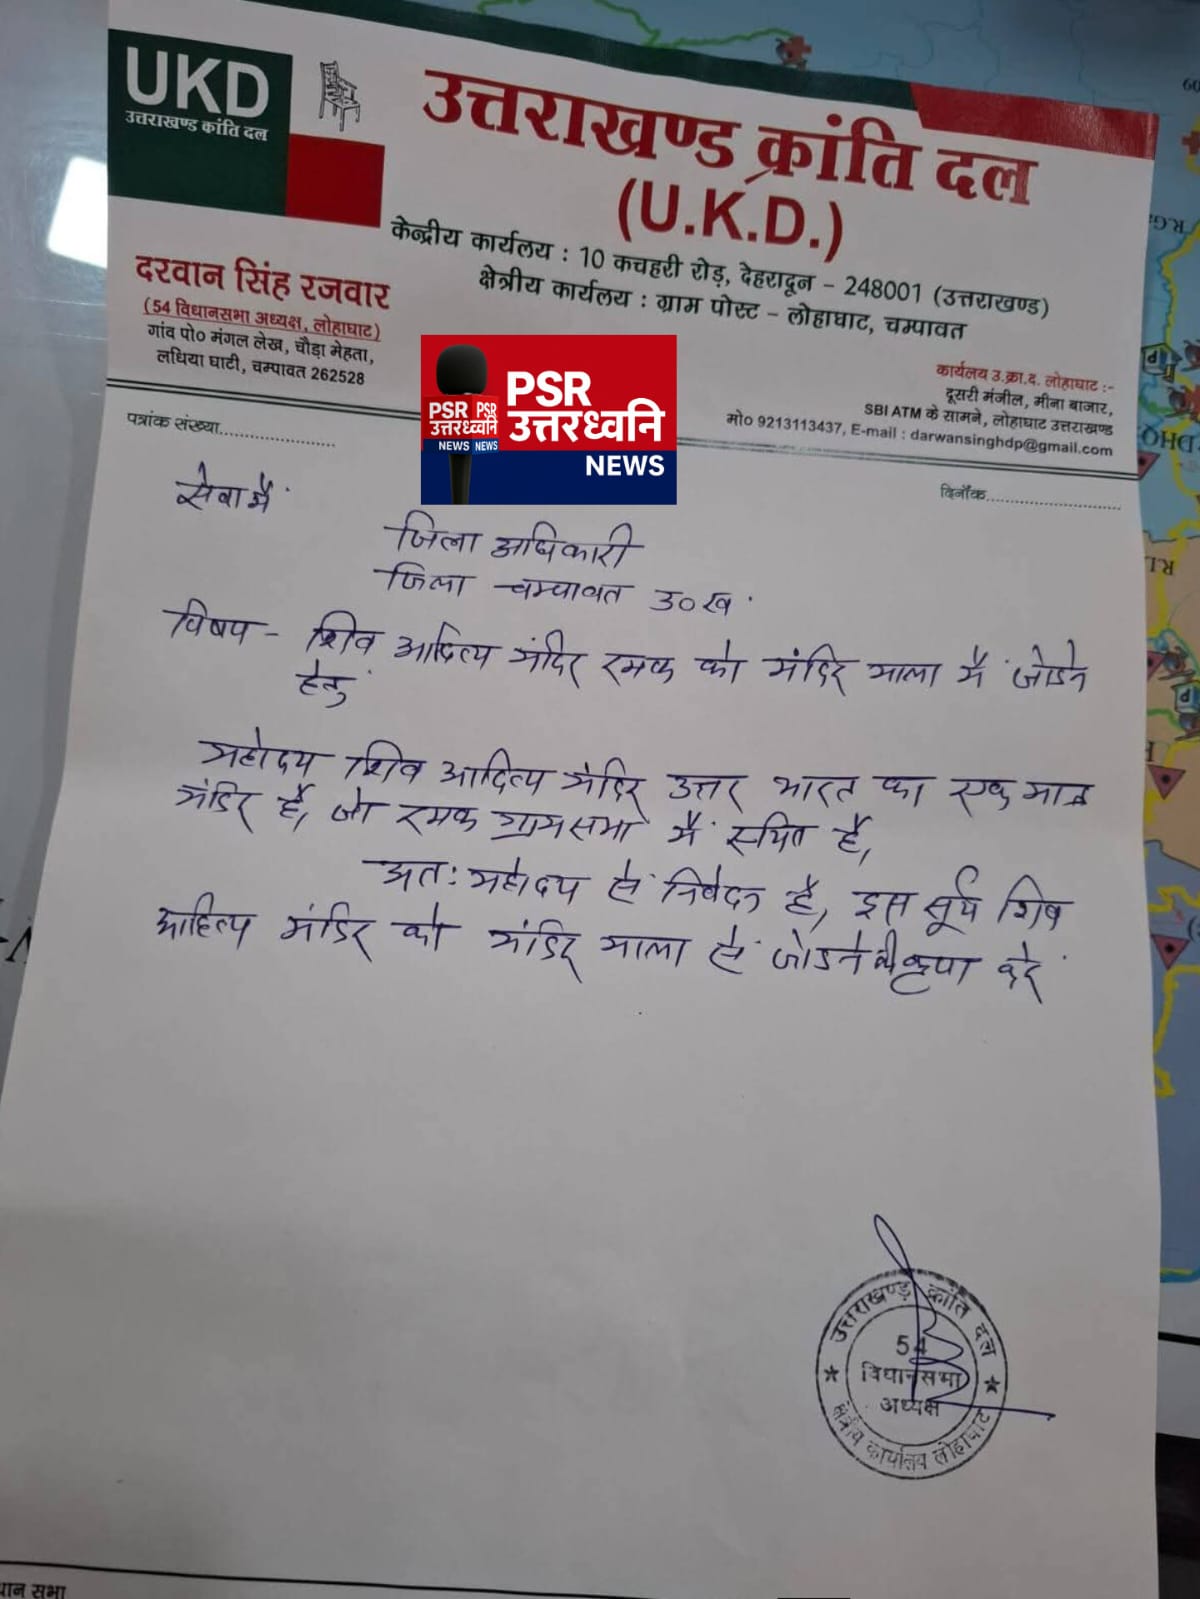 UKD
उत्तराखण्ड क्रांति दल
उत्तराखण्ड क्रांति दल
(U.K.D.)
केन्द्रीय कार्यलय : 10 कचहरी रोड़, देहरादून - 248001 (उत्तराखण्ड)
क्षेत्रीय कार्यलय : ग्राम पोस्ट - लोहाघाट, चम्पावत
दरवान सिंह रजवार
(54 विधानसभा अध्यक्ष, लोहाघाट)
गांव पो० मंगल लेख, चौड़ा मेहता,
लधिया घाटी, चम्पावत 262528
कार्यलय उ.क्रा.द. लोहाघाट :-
दूसरी मंजील, मीना बाजार,
SBI ATM के सामने, लोहाघाट उत्तराखण्ड
मो० 9213113437, E-mail : darwansinghdp@gmail.com
PSR PSR
उत्तरध्वनि
NEWS NEWS
PSR
उत्तरध्वनि
NEWS
पत्रांक संख्या......................
दिनाँक.........................
सेवा में
जिला अधिकारी
जिला चम्पावत उ०ख
विषय - शिव आदित्य मंदिर रमक को मंदिर माला में जोडने
हेतु
महोदय शिव आदित्य मंदिर उत्तर भारत का एक मात्र
मंदिर है, जो रमक ग्रामसभा में स्थित है,
अतः महोदय से निवेदन है, इस सूर्य शिव
आदित्य मंदिर को मंदिर माला से जोडने की कृपा करें
उत्तराखण्ड क्रांति दल
54
विधानसभा
अध्यक्ष
क्षेत्रीय कार्यालय लोहाघाट
धान सभा